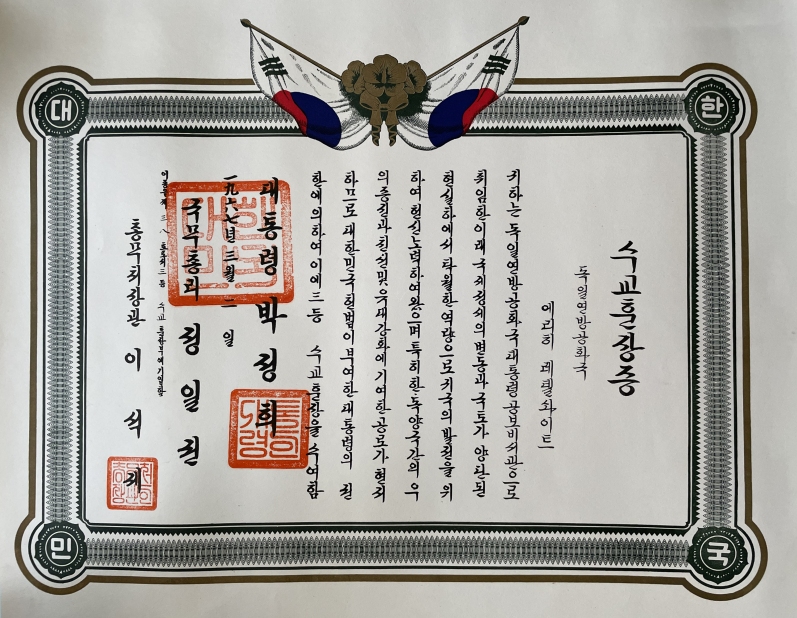 대
한
민
국
수교훈장증
독일연방공화국
에리히
귀하는 독일연방공화국대통령공보비서관으로
취임한이래 국제정세의변동과국토가 양단된
현실하에서 탁월한역량으로귀국의발전을 위
하여 헌신노력하여왔으며 특히한독양국간의 우
의증진과친선및유대강화에기여한공로가현저
하므로 대한민국헌법이부여한대통령의 권
한에의하여이에三등 수교훈장을수여함
一九六七년三월 二일
대통령 박정희
국무총리 정일권
三등 수교훈장부에기입함
총무처장관 이석제